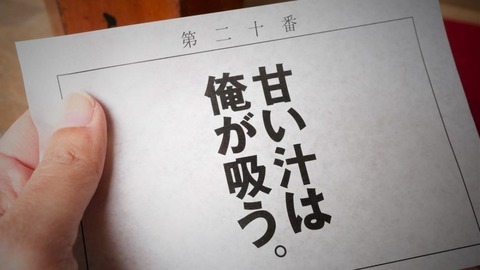 第二十番
甘い汁は
俺が吸う。